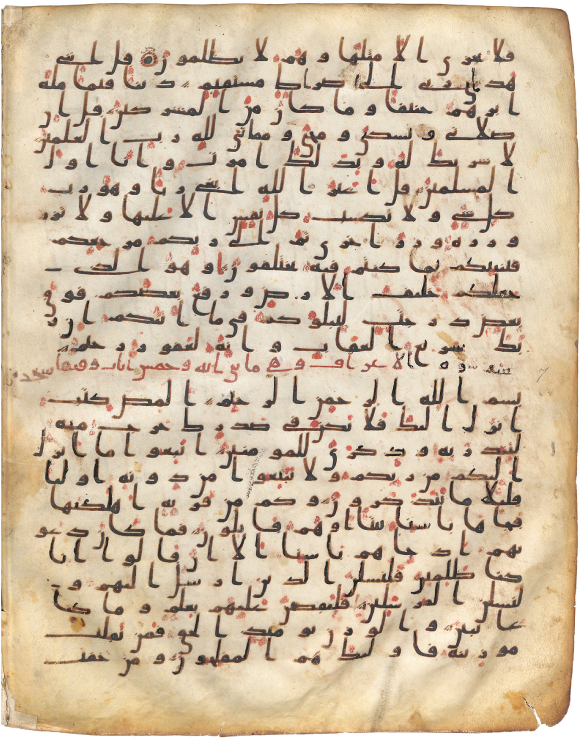 فلا يجزى الا مثلها و هم لا يظلمون قل اننى
هدينى ربى الى صراط مستقيم دينا قيما ملة
ابرهيم حنيفا و ما كان من المشركين قل ان
صلاتى و نسكى و محياى و مماتى لله رب العلمين
لا شريك له و بذلك امرت و انا اول
المسلمين قل اغير الله ابغى ربا و هو رب
كل شى و لا تكسب كل نفس الا عليها و لا تزر
و زرة و زر اخرى ثم الى ربكم مرجعكم
فينبئكم بما كنتم فيه تختلفون و هو الذى
جعلكم خليف الارض و رفع بعضكم فوق
بعض درجت ليبلوكم فى ما اتيكم ان ر
بك سريع العقاب و انه لغفور رحيم
سورة الاعراف و هى مايتان و خمس ايات
بسم الله الرحمن الرحيم المص كتب
انزل اليك فلا يكن فى صدرك حرج منه
لتنذر به و ذكرى للمومنين اتبعوا ما انزل
اليكم من ربكم و لا تتبعوا من دونه اوليا
قليلا ما تذكرون و كم من قرية اهلكنها
فجاها باسنا بيتا او هم قايلون فما كان دعو
يهم اذ جاهم باسنا الا ان قالوا انا
كنا ظلمين فلنسلن الذين ارسل اليهم و
لنسلن المرسلين فلنقصن عليهم بعلم و ما كنا
غايبين و الوزن يومئذ الحق فمن ثقلت
موزينه فاوليك هم المفلحون و من خفت